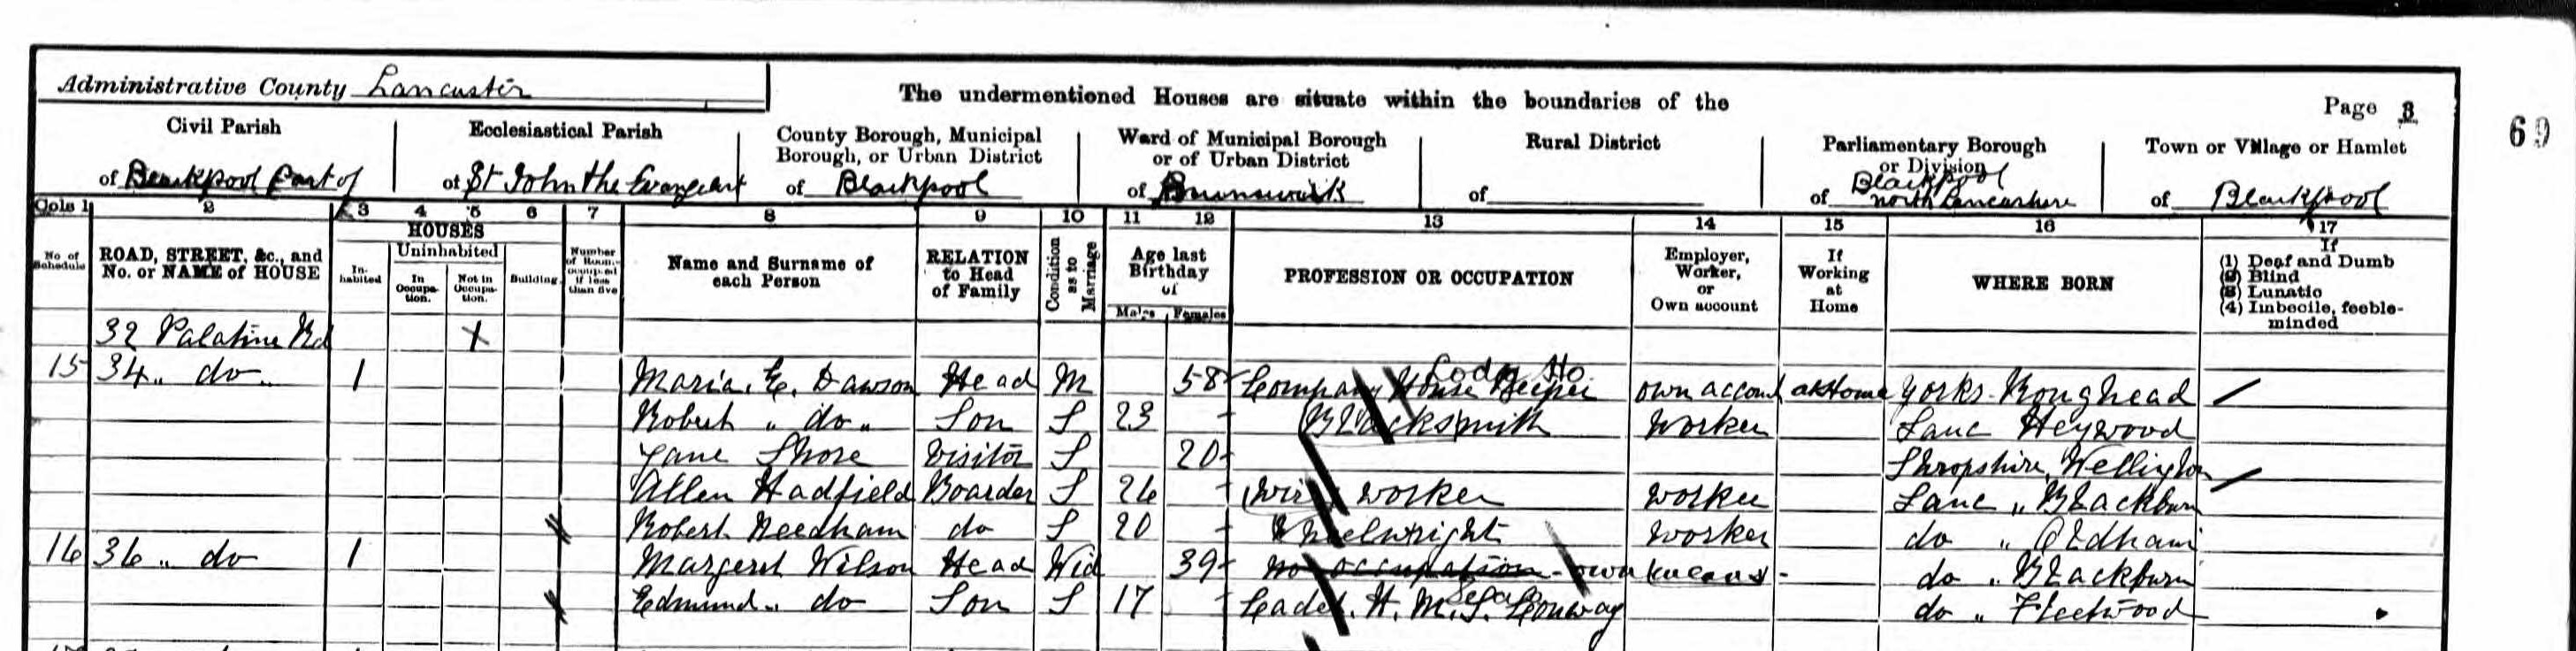 Administrative County Lancaster
The undermentioned Houses are situate within the boundaries of the
Page 8
69
Civil Parish
of Blackpool Part of
Ecclesiastical Parish
of St John the Evangelist
County Borough, Municipal Borough, or Urban District
of Blackpool
Ward of Municipal Borough or of Urban District
of Brunswick
Rural District
of
Parliamentary Borough or Division
of Blackpool North Lancashire
Town or Village or Hamlet
of Blackpool
Cols 1 2 3 4 5 6 7 8 9 10 11 12 13 14 15 16 17
No. of Schedule
ROAD, STREET, &c., and No. or NAME of HOUSE
HOUSES
Inhabited
Uninhabited
In Occupation.
Not in Occupation.
Building.
Number of Rooms occupied if less than five
Name and Surname of each Person
RELATION to Head of Family
Condition as to Marriage
Age last Birthday of
Males Females
PROFESSION OR OCCUPATION
Employer, Worker, or Own account
If Working at Home
WHERE BORN
If
(1) Deaf and Dumb
(2) Blind
(3) Lunatic
(4) Imbecile, feeble-minded
32 Palatine Rd X
Lodg Ho.
15 34 " do " 1 Maria. E. Dawson Head M 58 Company House Keeper own account at Home Yorks. Roughead
Robert " do " Son S 23 Blacksmith Worker Lanc Heywood
Jane Shore Visitor S 20 Shropshire, Wellington
Allen Hadfield Boarder S 26 worker worker Lanc " Blackburn
Robert Needham do S 20 Wheelwright Worker do " Oldham
16 36 " do 1 Margaret Wilson Head Wid 39 no occupation - own means - do " Blackburn
Edmund " do Son S 17 Cadet. H. M. S. Conway do " Fleetwood